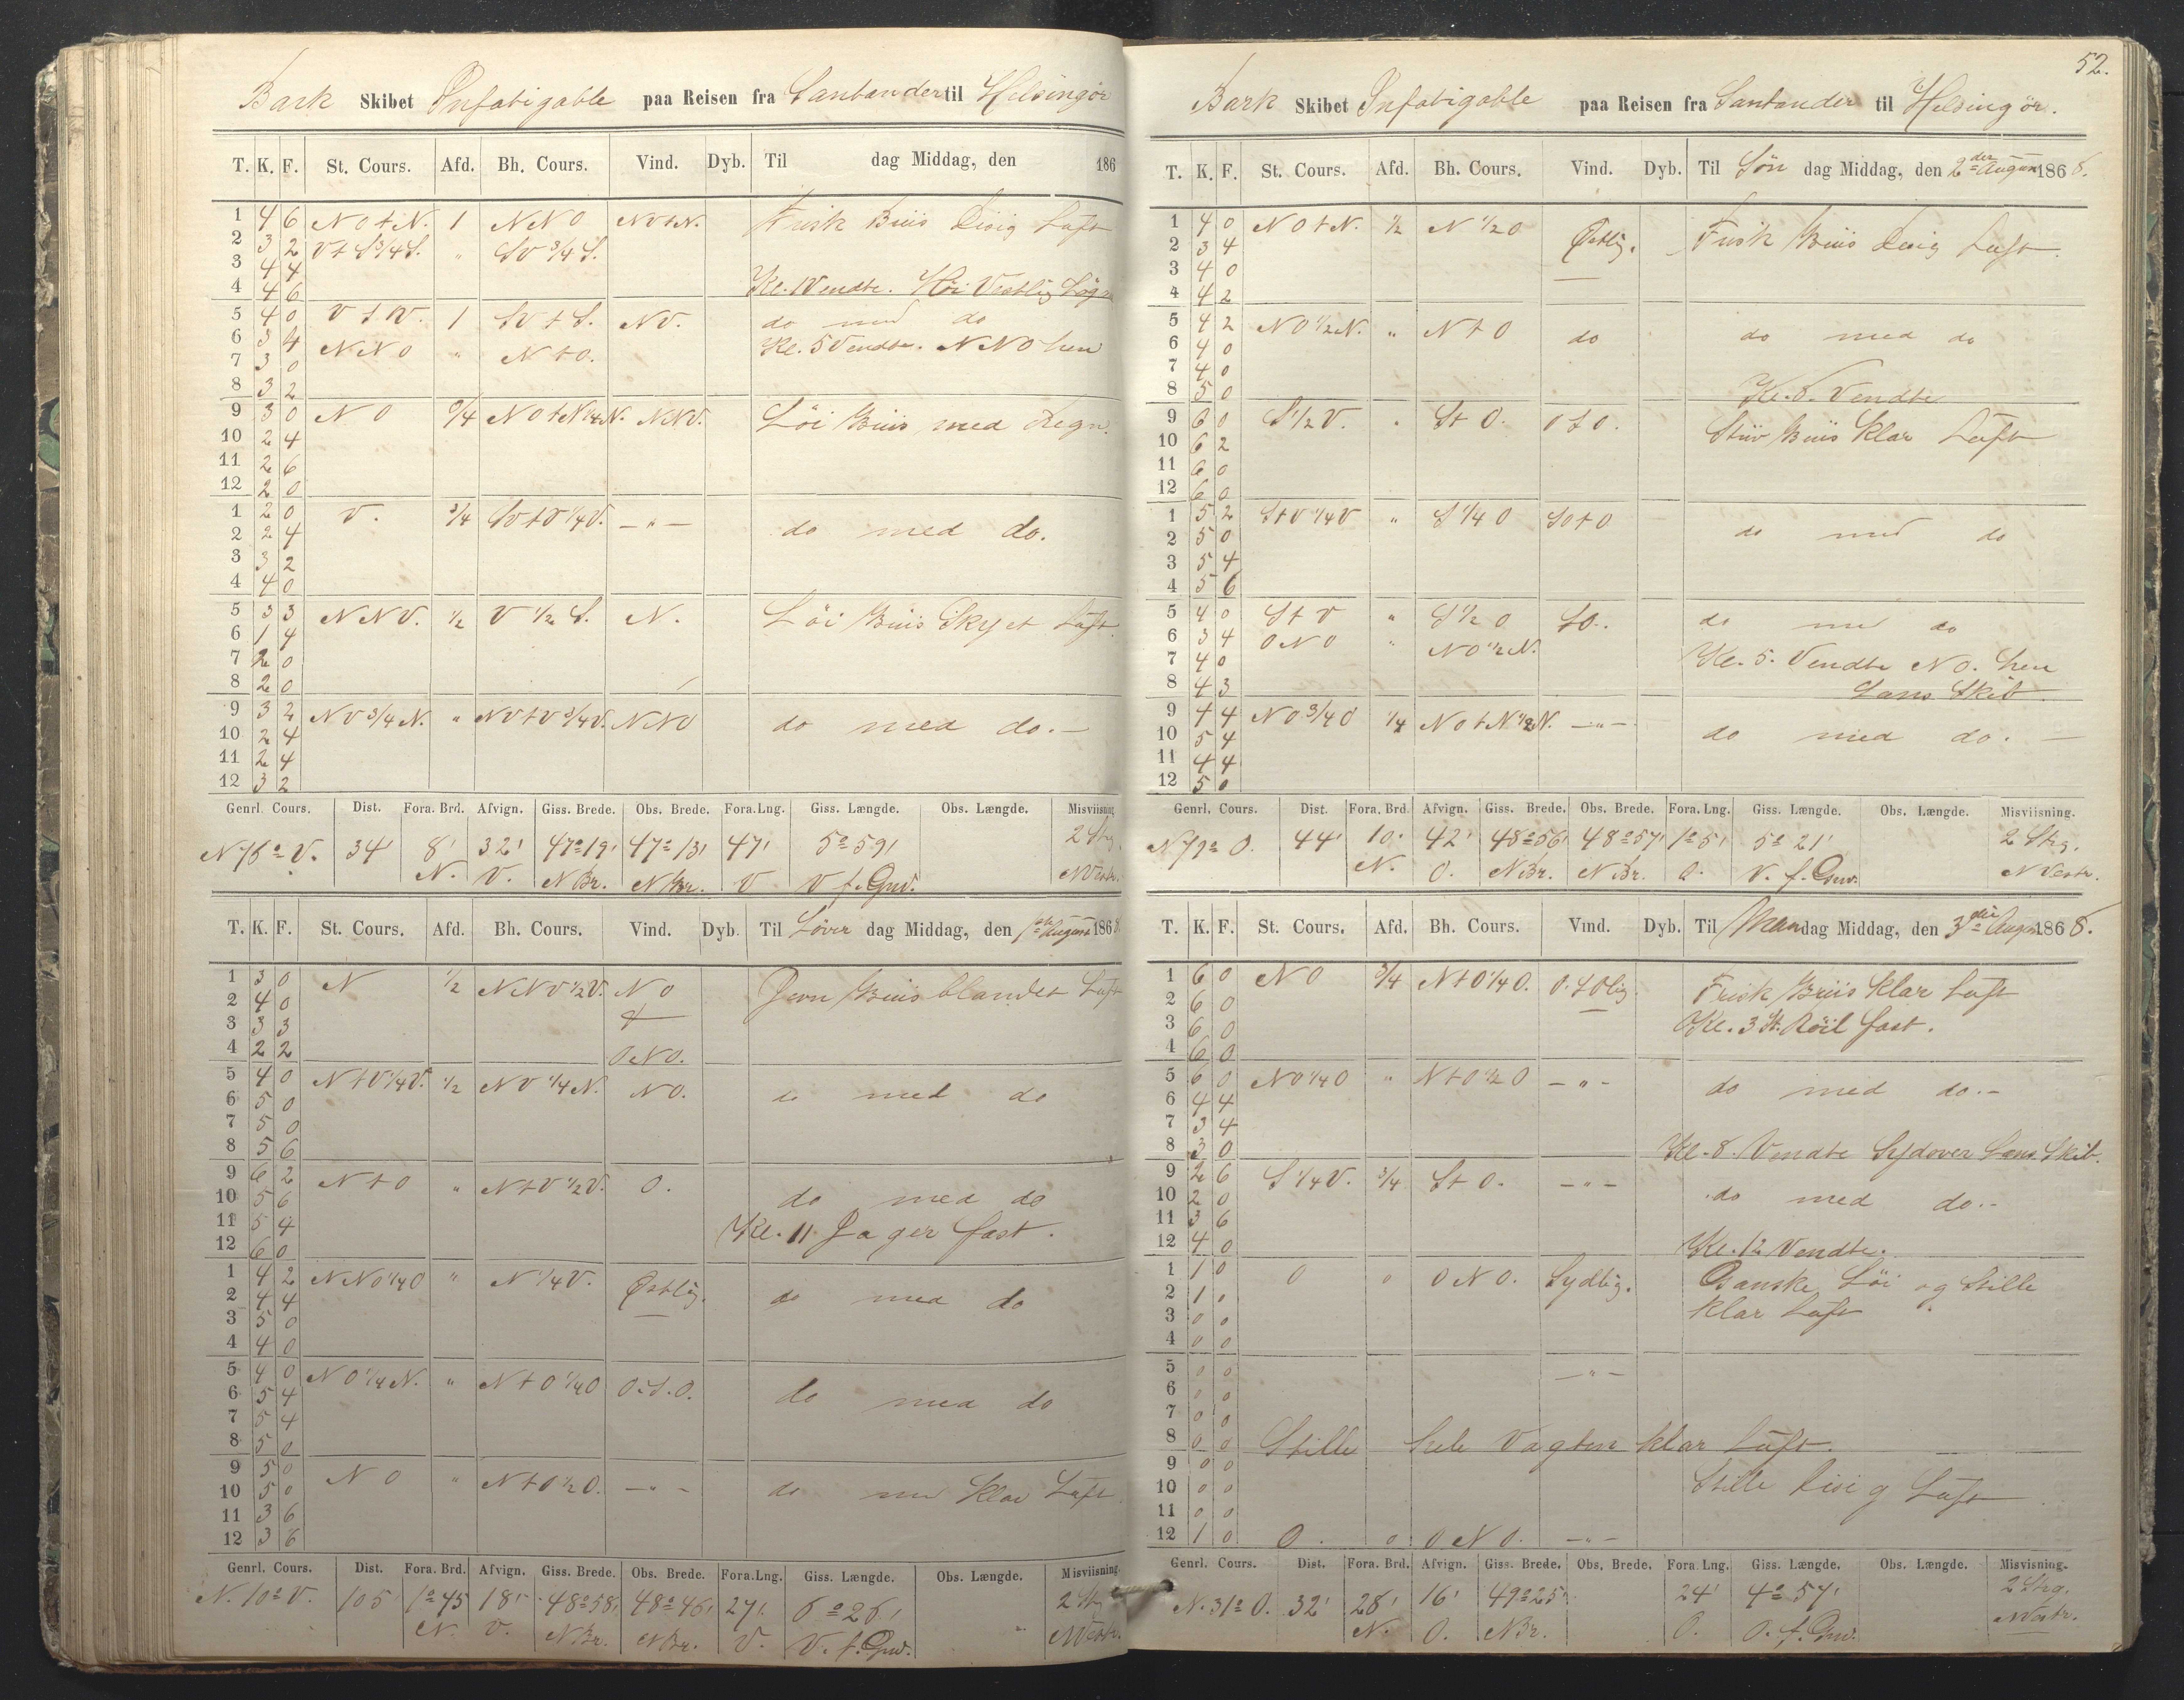 Bark Skibet Infatigable paa Reisen fra Santander til Helsingör
T. K. F. St. Cours. Afd. Bh. Cours. Vind. Dyb. Til dag Middag, den 186
1 4 6 N O t N. 1 N N O NO t N. Frisk Briis Disig Luft
2 3 2 V t S 3/4 S. " SV 3/4 S.
3 4 4
4 4 6 Kl. 1 Vendte. Höi Vestlig
5 4 0 1 SV t S. NV. do med do
6 3 4 Kl. 5 Vendte. NNO hen
7 3 0 NNO " N t O.
8 3 2
9 3 0 N O 3/4 NO t N 1/4 N. NNV. Löi Briis med Regn.
10 2 4
11 2 6
12 2 0
1 2 0 V. 3/4 SV t V 1/4 V. — " — do med do.
2 2 4
3 3 2
4 4 0
5 3 3 NNV. 1/2 V 1/2 S. N. Löi Briis Skyet Luft.
6 1 4
7 2 0
8 2 0
9 3 2 NV 3/4 N. " NV t V 3/4 V. NNO do med do. —
10 2 4
11 2 4
12 3 2
Genrl. Cours. Dist. Fora. Brd. Afvign. Giss. Brede. Obs. Brede. Fora. Lng. Giss. Længde. Obs. Længde. Misviisning.
N 76° V. 34' 8' 32' 47° 19' 47° 13' 47' 5° 59' 2 Str.
N. V. N Br. N Br. V V. f. Grw. N Vestr.
T. K. F. St. Cours. Afd. Bh. Cours. Vind. Dyb. Til Löver dag Middag, den 1ste August 1868.
1 3 0 N 1/2 NNV 1/2 V. NO Jevn Briis blandet Luft
2 4 0
3 3 3 t
4 2 2 ONO.
5 4 0 N t V 1/4 V. 1/2 NV 1/4 N. NO. do med do
6 5 0
7 5 0
8 5 6
9 6 2 N t O " N t V 1/2 V. O. do med do
10 5 6
11 5 4 Kl. 11 Jager fast.
12 6 0
1 4 2 NNO 1/4 O " N 1/4 V. Östlig. do med do
2 4 4
3 5 0
4 4 0
5 4 0 NO 1/4 N. " N t O 1/4 O O.S.O. do med do
6 5 4
7 5 4
8 5 0
9 5 0 N O " N t O 1/2 O. — " — do med Klar Luft.
10 5 0
11 3 6
12 3 6
Genrl. Cours. Dist. Fora. Brd. Afvign. Giss. Brede. Obs. Brede. Fora. Lng. Giss. Længde. Obs. Længde. Misviisning
N. 10° V. 105' 1° 45 18' 48° 58' 48° 46' 27' 6° 26' 2 Str.
N. V. N Br. N Br. V. V. f. Grw. N Vestr.
52.
Bark Skibet Infatigable paa Reisen fra Santander til Helsingör.
T. K. F. St. Cours. Afd. Bh. Cours. Vind. Dyb. Til Sön dag Middag, den 2den August 1868.
1 4 0 N O t N. 1/2 N 1/2 O Östlig. Frisk Briis Disig Luft.
2 3 4
3 4 0
4 4 2
5 4 2 NO 1/2 N. " N t O do do med do
6 4 0
7 4 0
8 5 0 Kl. 8. Vendte
9 6 0 S 1/2 V. " S t O. O t O. Stiv Briis Klar Luft
10 6 2
11 6 0
12 6 0
1 5 2 S t V 1/4 V " S 1/4 O SO t O do med do
2 5 0
3 5 4
4 5 6
5 4 0 S t V " S 1/2 O SO. do med do
6 3 4 ONO " NO 1/2 N.
7 4 0 Kl. 5. Vendte NO. hen
8 4 3 Lans Skib
9 4 4 NO 3/4 O 1/4 NO t N 1/2 N. — " — do med do. —
10 5 4
11 4 4
12 5 0
Genrl. Cours. Dist. Fora. Brd. Afvign. Giss. Brede. Obs. Brede. Fora. Lng. Giss. Længde. Obs. Længde. Misviisning.
N 79° O. 44' 10' 42' 48° 56' 48° 57' 1° 5' 5° 21' 2 Str.
N. O. N Br. N Br. O. V. f. Grw. N Vestr.
T. K. F. St. Cours. Afd. Bh. Cours. Vind. Dyb. Til Man dag Middag, den 3die August 1868.
1 6 0 N O 3/4 N t O 1/4 O. Frisk Briis Klar Luft
2 6 0
3 6 0 Kl. 3 St. Röil fast.
4 6 0
5 6 0 NO 1/4 O " N t O 1/2 O — " — do med do. —
6 4 4
7 3 4
8 3 0 Kl. 8. Vendte Sydover Lans Skib.
9 2 6 S 1/4 V. 3/4 S t O. — " — do med do. —
10 2 0
11 3 6
12 4 0 Kl. 12 Vendte.
1 1 0 O o ONO. Sydlig. Ganske Löi og Stille
2 1 . klar Luft
3 0 0
4 0 0
5 0 0 — " —
6 0 0
7 0 0
8 0 0 Stille hele Vagten klar Luft.
9 0 0
10 0 0 Stille Disig Luft
11 0 0
12 1 0 O. o ONO. — " —
Genrl. Cours. Dist. Fora. Brd. Afvign. Giss. Brede. Obs. Brede. Fora. Lng. Giss. Længde. Obs. Længde. Misvisning.
N. 31° O. 32' 28' 16' 49° 25' 24' 4° 57' 2 Str.
N. O. N Br. O. O. f. Grw. N Vestr.